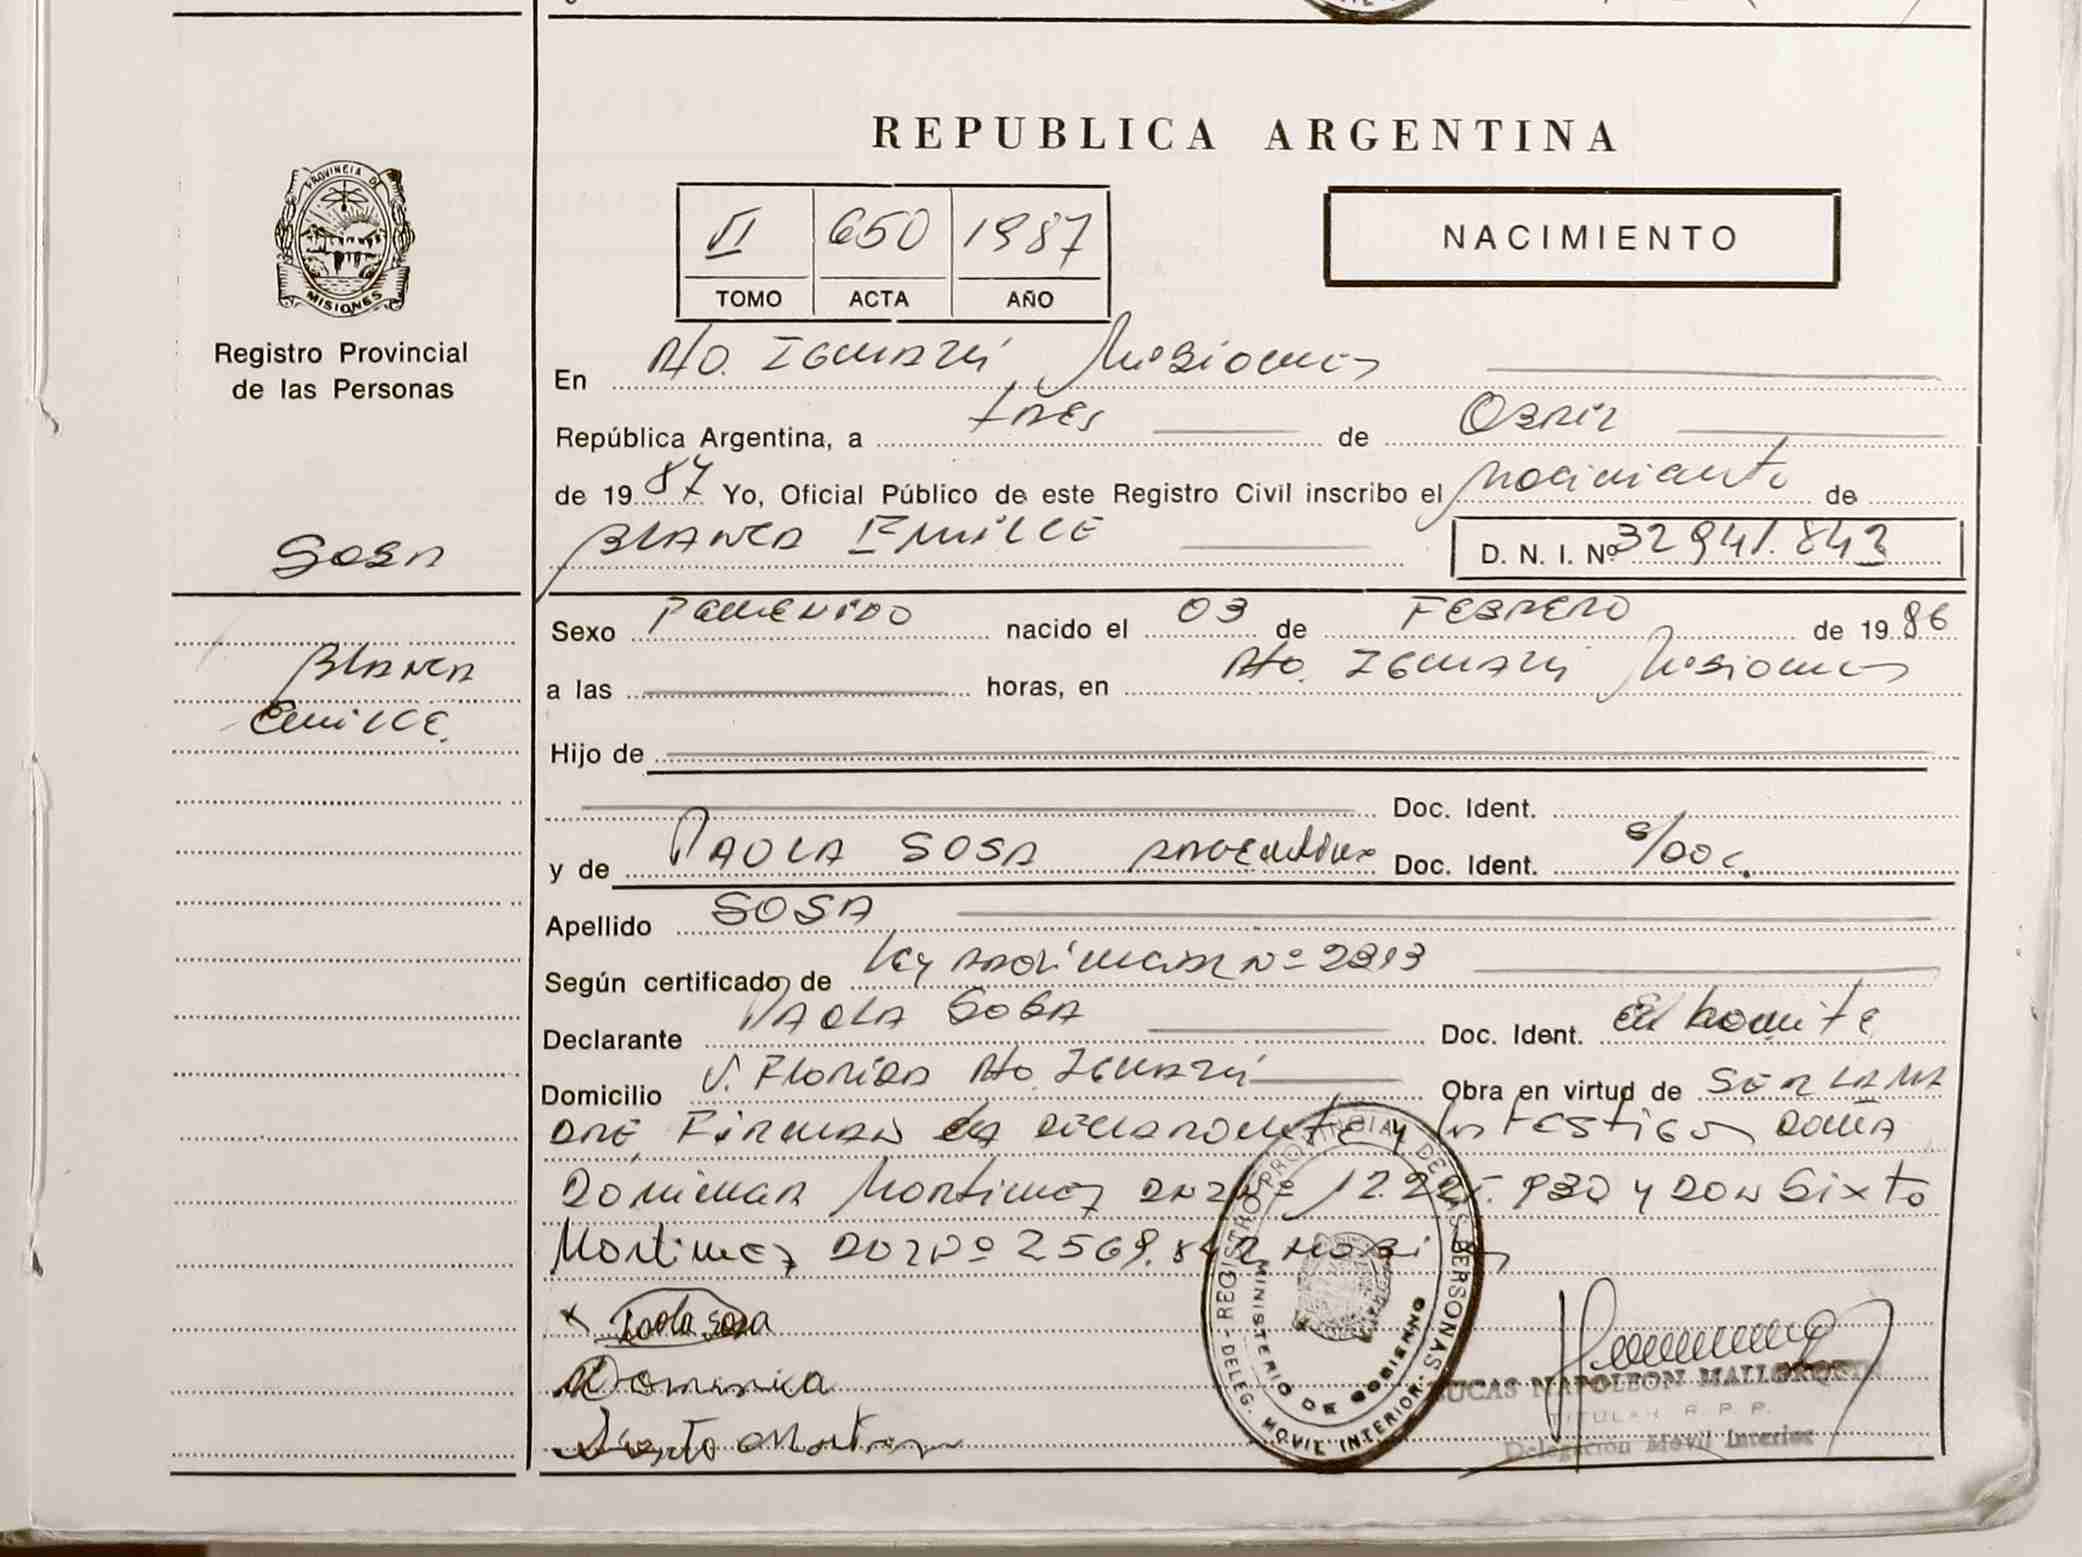 REPUBLICA ARGENTINA
PROVINCIA D MISIONES
VI 650 1987
TOMO ACTA AÑO
NACIMIENTO
Registro Provincial
de las Personas
En Pto. Iguazú, Misiones
República Argentina, a tres de Abril
de 1987 Yo, Oficial Público de este Registro Civil inscribo el nacimiento de
Blanca Emilce D. N. I. Nº 32941.843
SOSA
Sexo Femenino nacido el 03 de FEBRERO de 1986
Blanca
Emilce.
a las horas, en Pto. Iguazú Misiones
Hijo de
Doc. Ident.
y de PAOLA SOSA argentina Doc. Ident. s/doc.
Apellido SOSA
Según certificado de Ley Nº
Declarante PAOLA SOSA Doc. Ident. en tramite
Domicilio V. Florida Pto. Iguazú Obra en virtud de SER LA MA
DRE Firman la declarante y los testigos Doña
Martinez DNI Nº y Don Sixto
Martinez DNI Nº
Paola Sosa
Dominica
Sixto
REGISTRO PROVINCIAL DE LAS PERSONAS - DELEG. MOVIL INTERIOR -
MINISTERIO DE GOBIERNO
LUCAS NAPOLEON MALLORQUIN
TITULAR R. P. P.
Delegación Móvil Interior